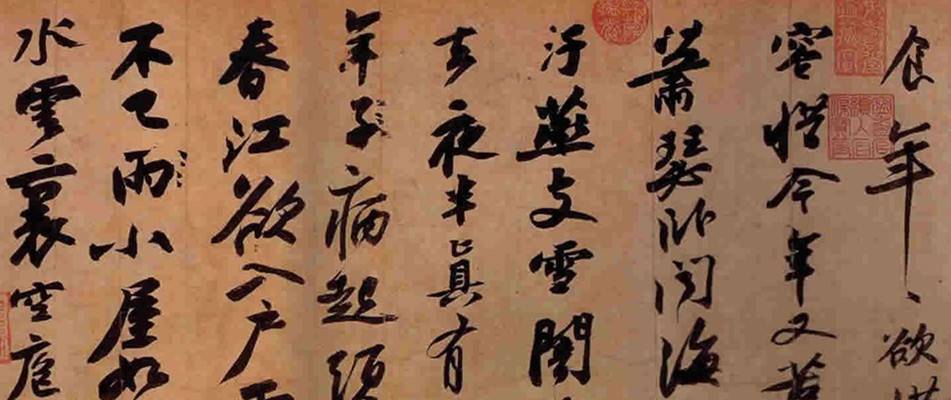 食年〻欲
容惜今年又苦
蕭瑟臥聞海
汙燕支雪闇
去夜半真有
年子病起須
春江欲入戶
不已雨小屋如
水雲裏空庖